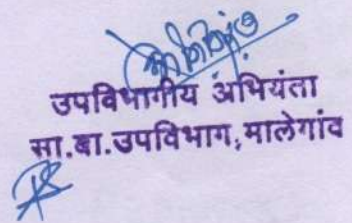 उपविभागीय अभियंता
सा.बा.उपविभाग,मालेगांव